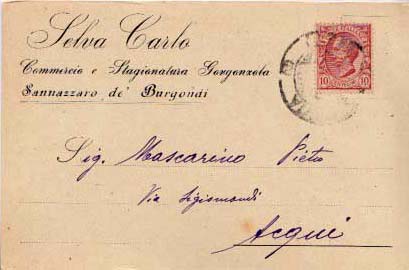 Selva Carlo
Commercio e Stagionatura Gorgonzola
Sannazzaro de' Burgondi
10 10
Sig. Mascarino Pietro
Via Sigismondi
Acqui